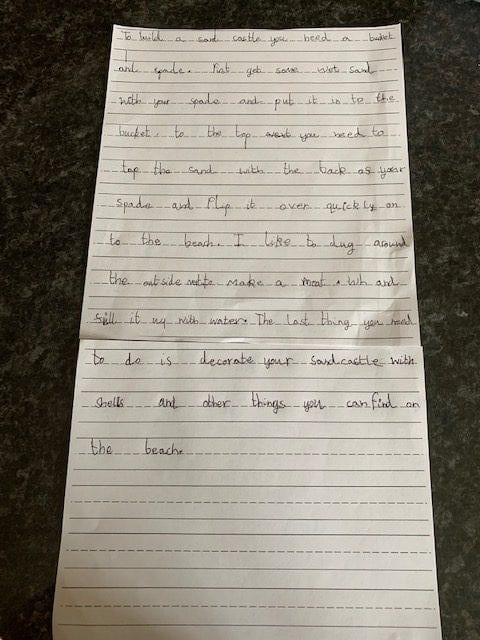 To build a sand castle you need a bucket
and spade. First get some wet sand
with your spade and put it in to the
bucket. to the top next you need to
tap the sand with the back as your
spade and flip it over quickly on
to the beach. I like to dug around
the outside make a moat. and
fill it up with water. The last thing you need
to do is decorate your sandcastle with
shells and other things you can find on
the beach.